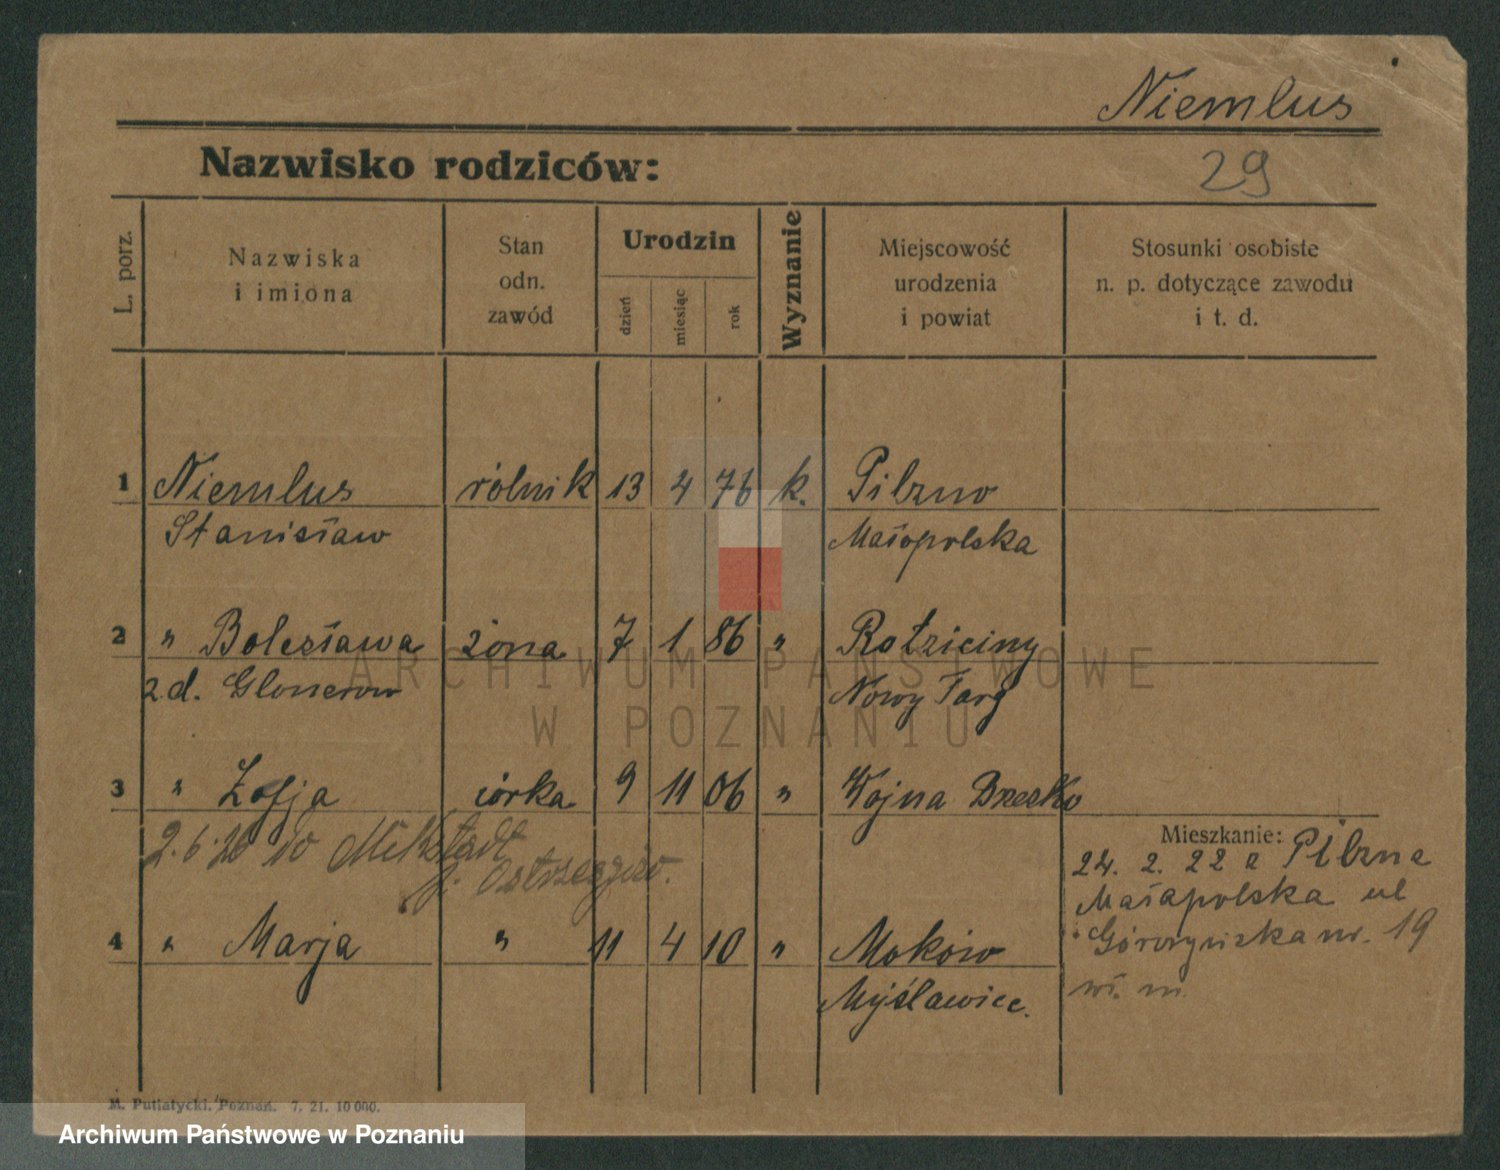 Niemlus
Nazwisko rodziców:
29
L. porz.
Nazwiska
i imiona
Stan
odn.
zawód
Urodzin
dzień
miesiąc
rok
Wyznanie
Miejscowość
urodzenia
i powiat
Stosunki osobiste
n. p. dotyczące zawodu
i t. d.
1 Niemlus rólnik 13 4 76 k. Pilzno
Stanisław Małopolska
2 " Bolesława żona 7 1 86 " Rotziciny
zd. Glonerow Nowy Targ
3 " Zofja córka 9 11 06 " Wojna Brzesko
2.6.26 do Mikstadt
p. Ostrzeszów.
Mieszkanie:
24. 2. 22 z Pilzna
Małapolska ul
nr. 19
4 " Marja " 11 4 10 " Moków
Myślawice.
M. Putiatycki, Poznań. 7. 21. 10 000.
ARCHIWUM PAŃSTWOWE
W POZNANIU
Archiwum Państwowe w Poznaniu